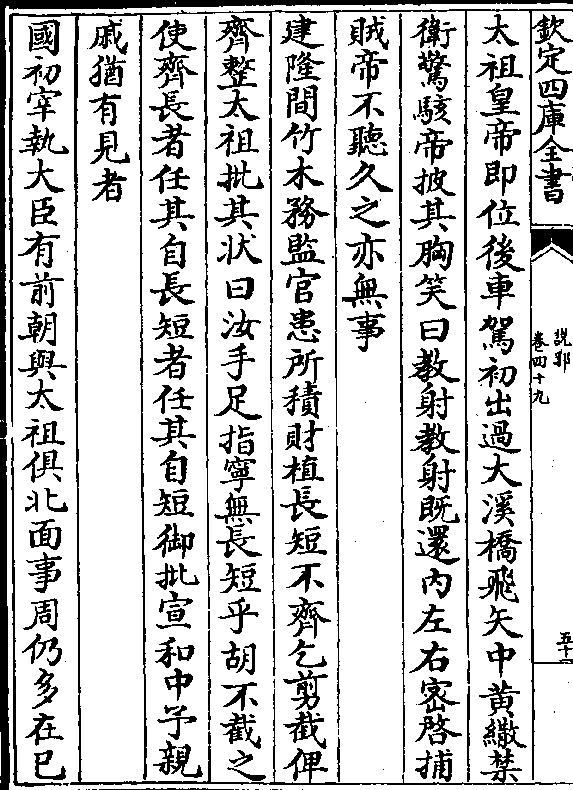 欽定四庫全書
說郛
卷四十九
五十
太祖皇帝即位後車駕初出過大溪橋飛矢中黄繖禁
衛驚駭帝披其胸笑曰教射教射既還内左右宻啓捕
賊帝不聽久之亦無事
建隆間竹木務監官患所積財植長短不齊乞剪截俾
齊整太祖批其状曰汝手足指寧無長短乎胡不截之
使齊長者任其自長短者任其自短御批宣和中予親
戚猶有見者
國初宰執大臣有前朝與太祖俱北面事周仍多在已